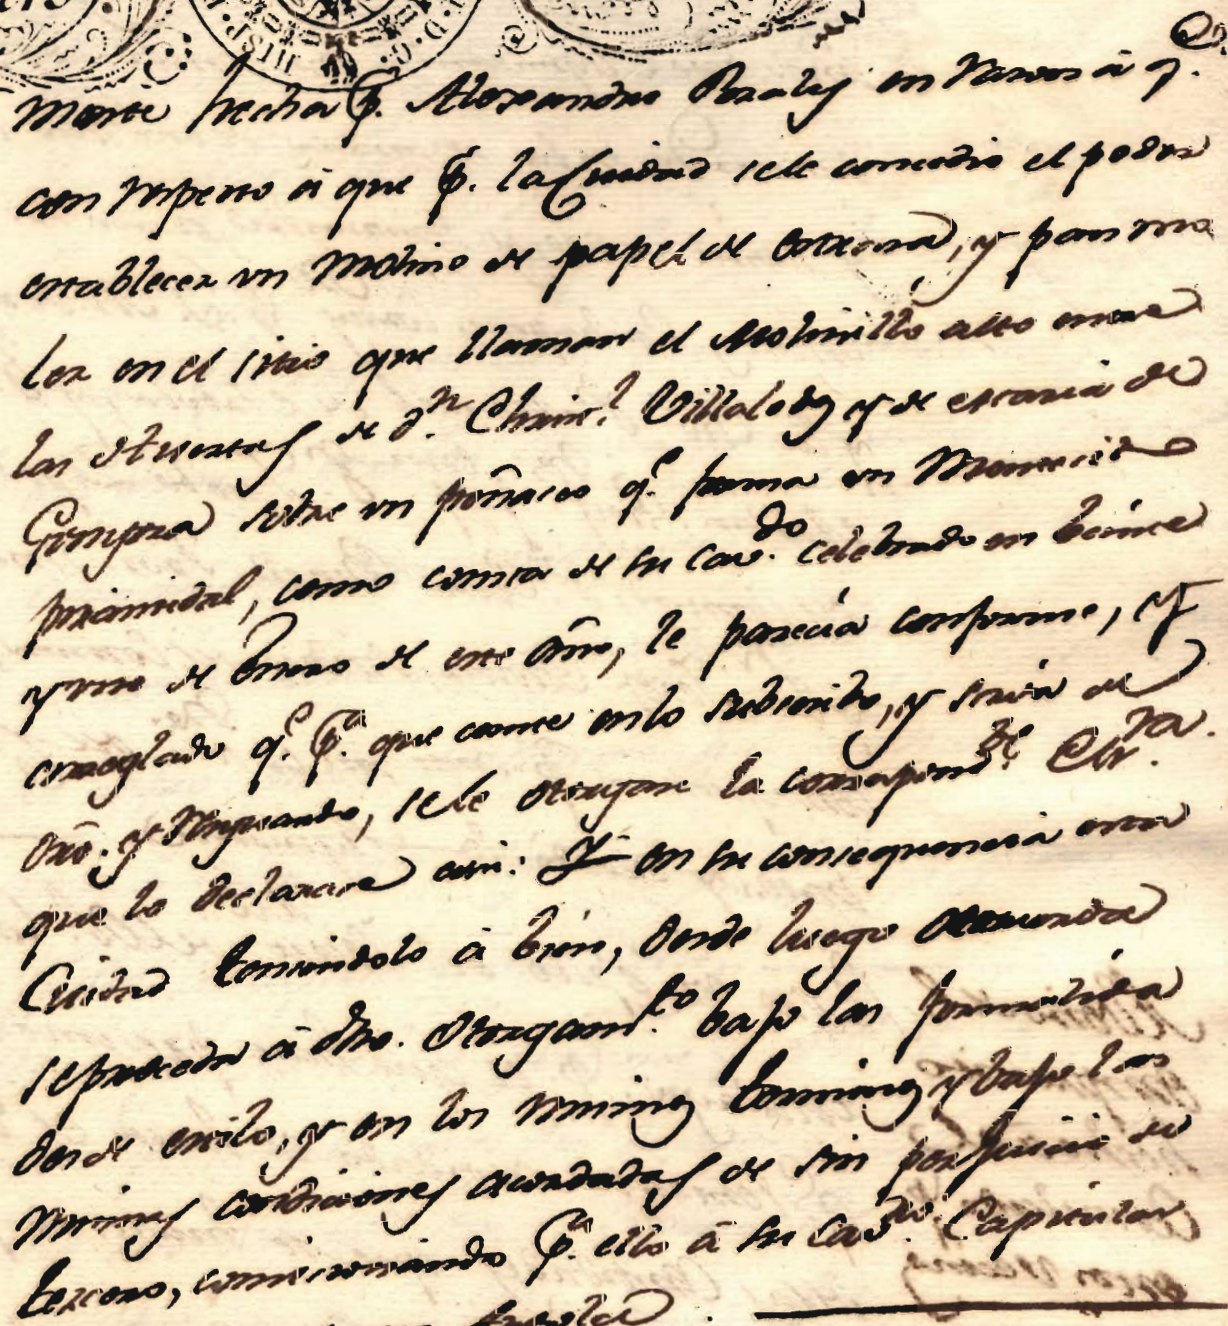 HISP.
mente hecha p. Alexandro Perales en razon á q.
con respecto á que p. la Ciudad se le concedio el poder
establecer un Molino de papel de estraza, y para mo
ler en el sitio que llaman el Molinillo alto entre
las Huertas de d.n Christ.l Villalobos y de
sobre un peñasco q.e forma un
piramidal, como consta de su cav.do celebrado en beinte
y uno de Enero de este año, le parecia conforme, y
arreglado q.e p.a que conste en lo subcesivo, y sirva de
y resguardo, se le otorgare la correspond.te Esc.ra
que lo declarare asi: Y en su consequencia esta
Ciudad teniendolo á bien, desde luego acuerda
se proceda á dho. otorgam.to bajo las formalida
des de estilo, y en los mismos terminos y bajo las
mismas condiciones acordadas de sin perjuicio de
tercero, comisionando p.a ello á su Cav.ro Capitular